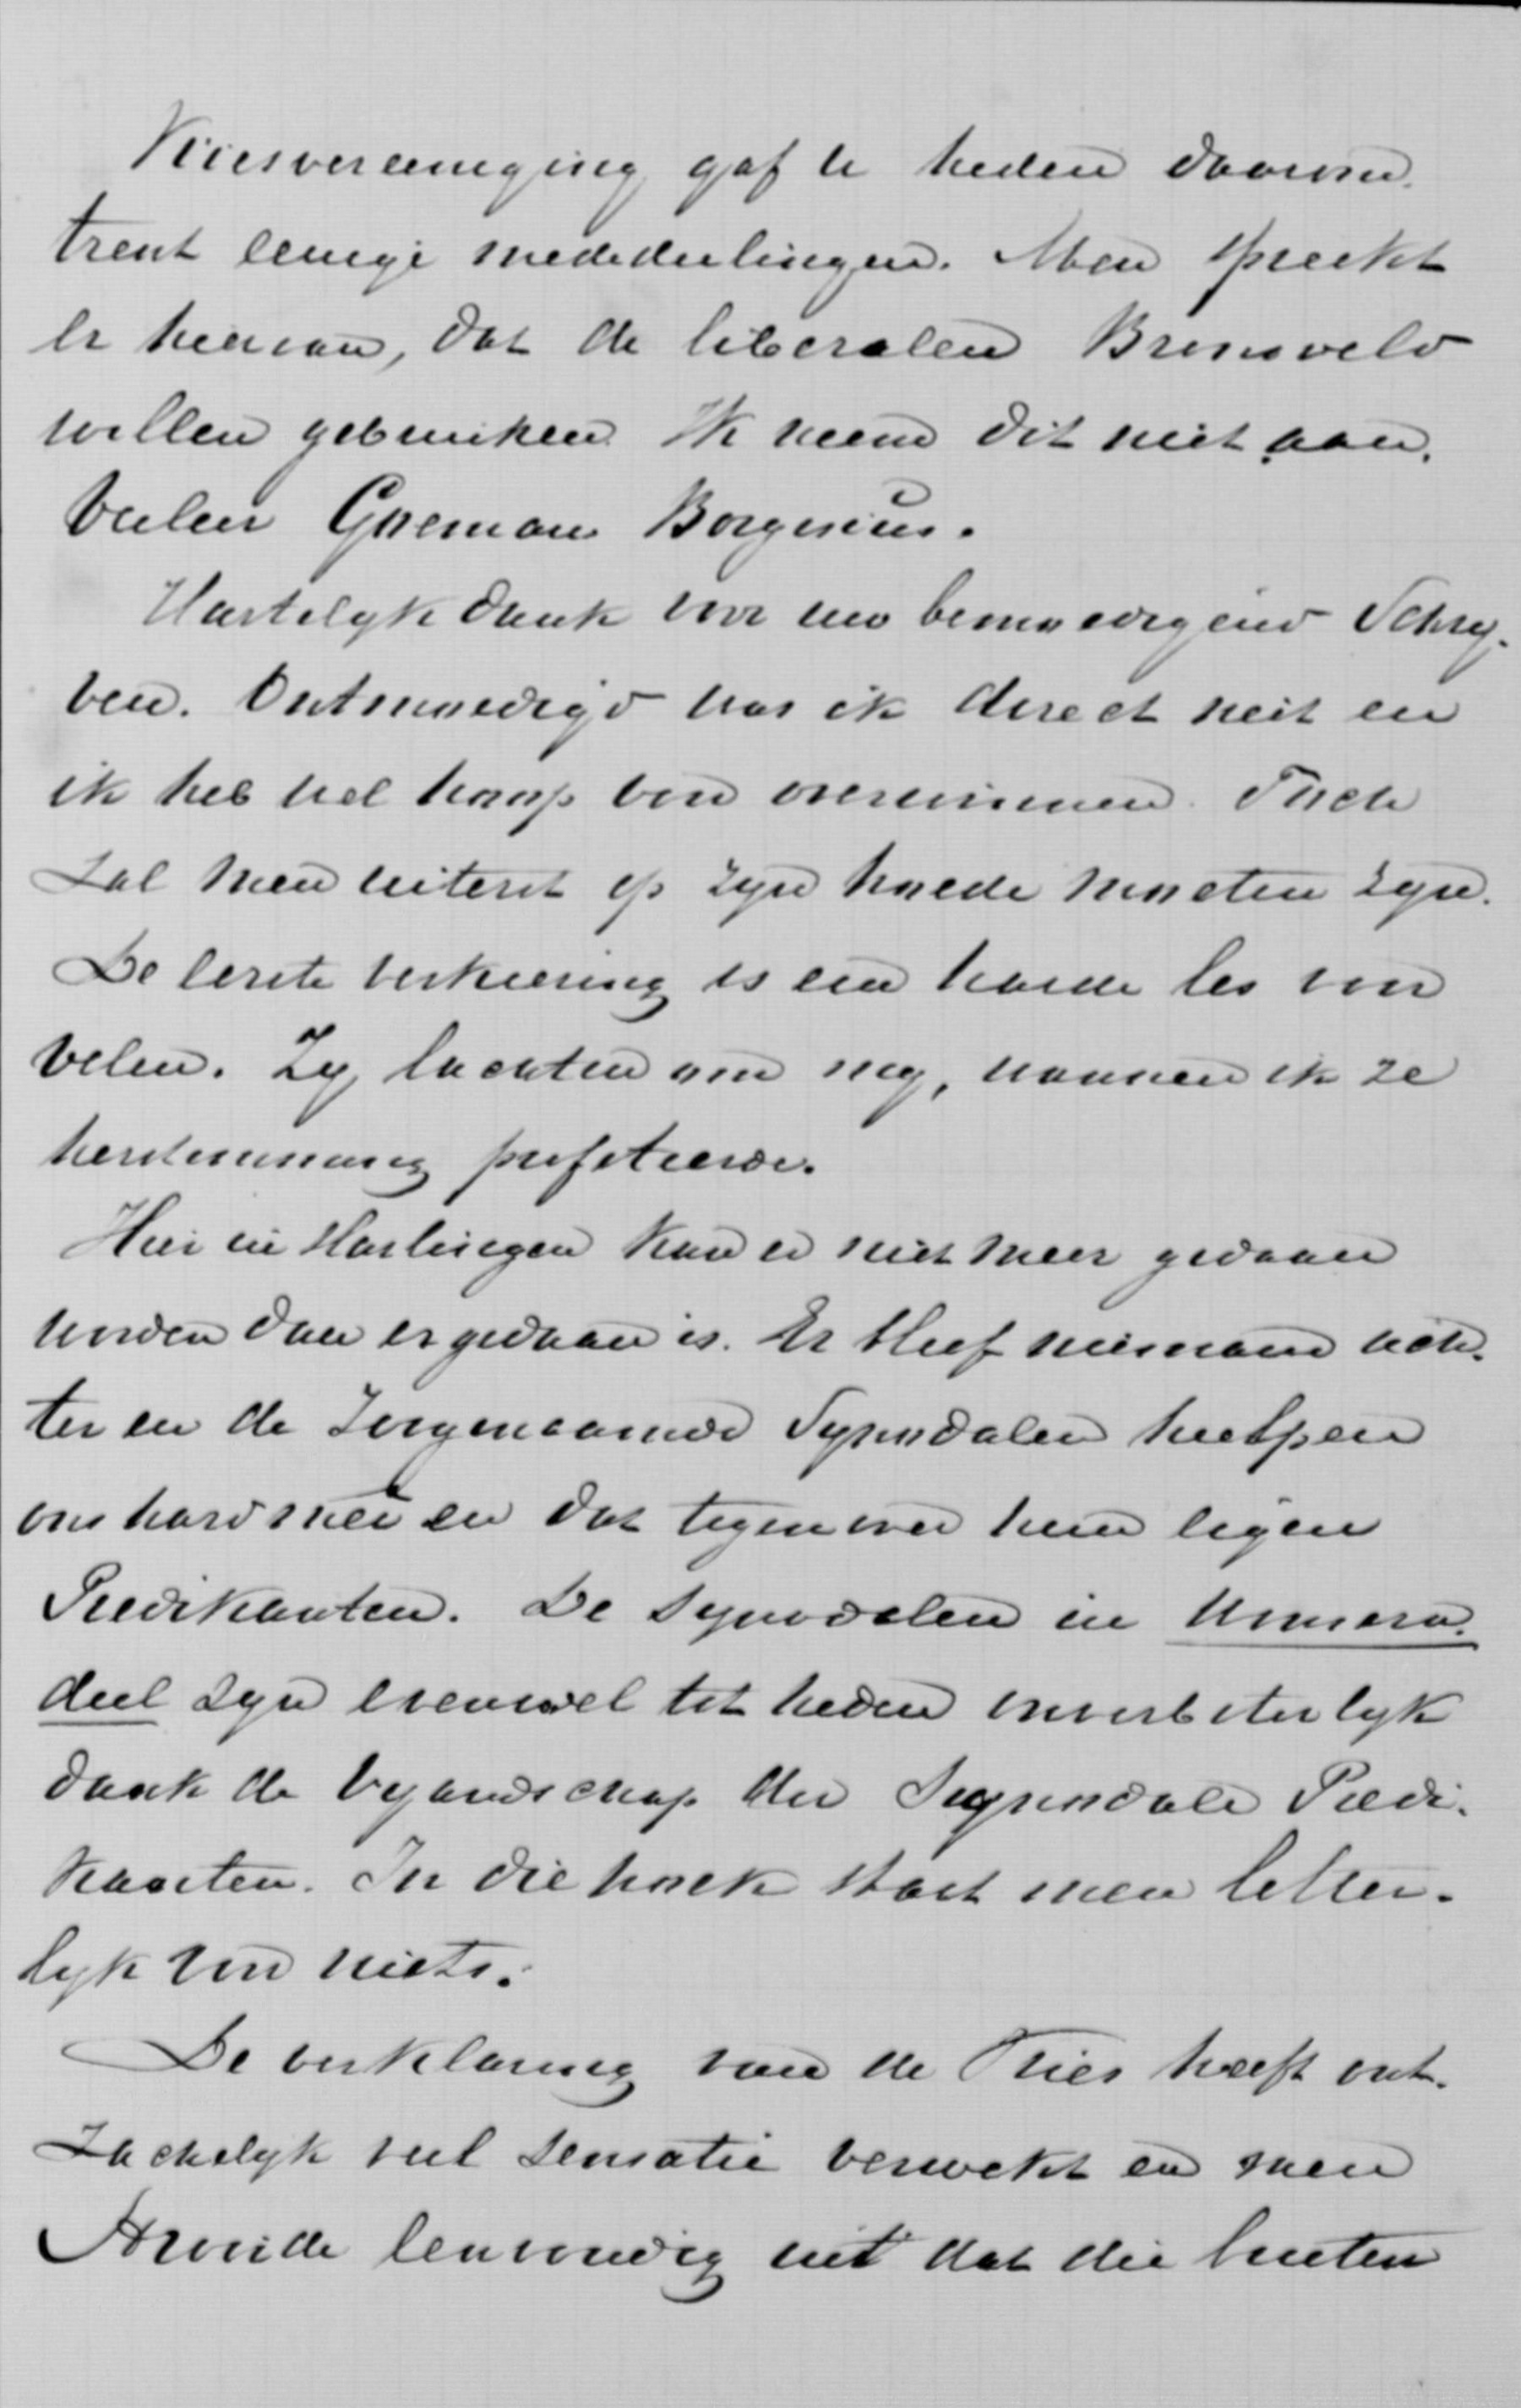 Kiesvereeniging gaf te heden daarom-
trent eenige mededeelingen. Men spreekt
er hiervan, dat de liberalen Bronsveld
willen gebruiken. Ik neem dit niet aan.
Veeleer Goeman Borgesius.
Hartelyk dank voor uw bemoedigend Schry-
ven. Ontmoedigd was ik direct niet en
ik heb veel hoop van overwinnen. Toch
zal men uiterst op zyn hoede moeten zyn.
De eerste verkiezing is een harde les voor
velen. Zy lachten om my, wanneer ik ze
herstemming profeteerde.
Hier in Harlingen kan er niet meer gedaan
worden dan er gedaan is. Er bleef niemand ach-
ter en de zoogenaamde Synodalen hielpen
ons hard mee en dat tegenover hun eigen
Predikanten. De Synodalen in Wonsera-
deel zyn evenwel tot heden onverbeterlyk
dank de vyandschap der Synodale Predi-
kanten. In die hoek staat men letter-
lyk voor niets.
De verklaring van de Vries heeft ont-
zachelyk veel sensatie verwekt en men
strooide eenvoudig uit dat die buiten